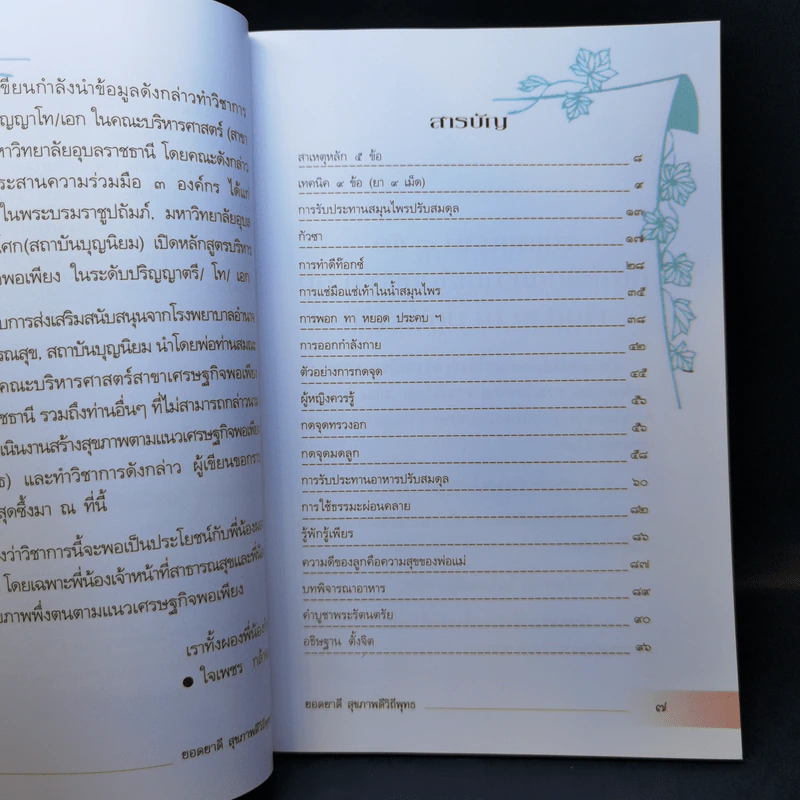 ขียนกำลังนำข้อมูลดังกล่าวทำวิชาการ
ญญาโท/เอก ในคณะบริหารศาสตร์ (สาขา
หาวิทยาลัยอุบลราชธานี โดยคณะดังกล่าว
ระสานความร่วมมือ ๓ องค์กร ได้แก่
ในพระบรมราชูปถัมภ์, มหาวิทยาลัยอุบล
ศก(สถาบันบุญนิยม) เปิดหลักสูตรบริหาร
จพอเพียง ในระดับปริญญาตรี/ โท/ เอก
บการส่งเสริมสนับสนุนจากโรงพยาบาลอำนาจ
รณสุข, สถาบันบุญนิยม นำโดยพ่อท่านสมณะ
คณะบริหารศาสตร์สาขาเศรษฐกิจพอเพียง
ชธานี รวมถึงท่านอื่นๆ ที่ไม่สามารถกล่าวนาม
เนินงานสร้างสุขภาพตามแนวเศรษฐกิจพอเพียง
ธ) และทำวิชาการดังกล่าว ผู้เขียนขอกราบ
สุดซึ้งมา ณ ที่นี้
งว่าวิชาการนี้จะพอเป็นประโยชน์กับพี่น้อง
โดยเฉพาะพี่น้องเจ้าหน้าที่สาธารณสุขและพี่น้อง
ขภาพพึ่งตนตามแนวเศรษฐกิจพอเพียง
เราทั้งผองพี่น้องกัน
● ใจเพชร กล้า
ยอดยาดี สุขภาพดีวิถีพุทธ
สารบัญ
สาเหตุหลัก ๕ ข้อ ๘
เทคนิค ๙ ข้อ (ยา ๙ เม็ด) ๙
การรับประทานสมุนไพรปรับสมดุล ๑๓
กัวซา ๑๗
การทำดีท๊อกซ์ ๒๘
การแช่มือแช่เท้าในน้ำสมุนไพร ๓๕
การพอก ทา หยอด ประคบ ฯ ๓๘
การออกกำลังกาย ๔๒
ตัวอย่างการกดจุด ๔๕
ผู้หญิงควรรู้ ๕๖
กดจุดทรวงอก ๕๖
กดจุดมดลูก ๕๘
การรับประทานอาหารปรับสมดุล ๖๐
การใช้ธรรมะผ่อนคลาย ๘๒
รู้พักรู้เพียร ๘๖
ความดีของลูกคือความสุขของพ่อแม่ ๘๗
บทพิจารณาอาหาร ๘๙
คำบูชาพระรัตนตรัย ๙๐
อธิษฐาน ตั้งจิต ๙๖
ยอดยาดี สุขภาพดีวิถีพุทธ ๗